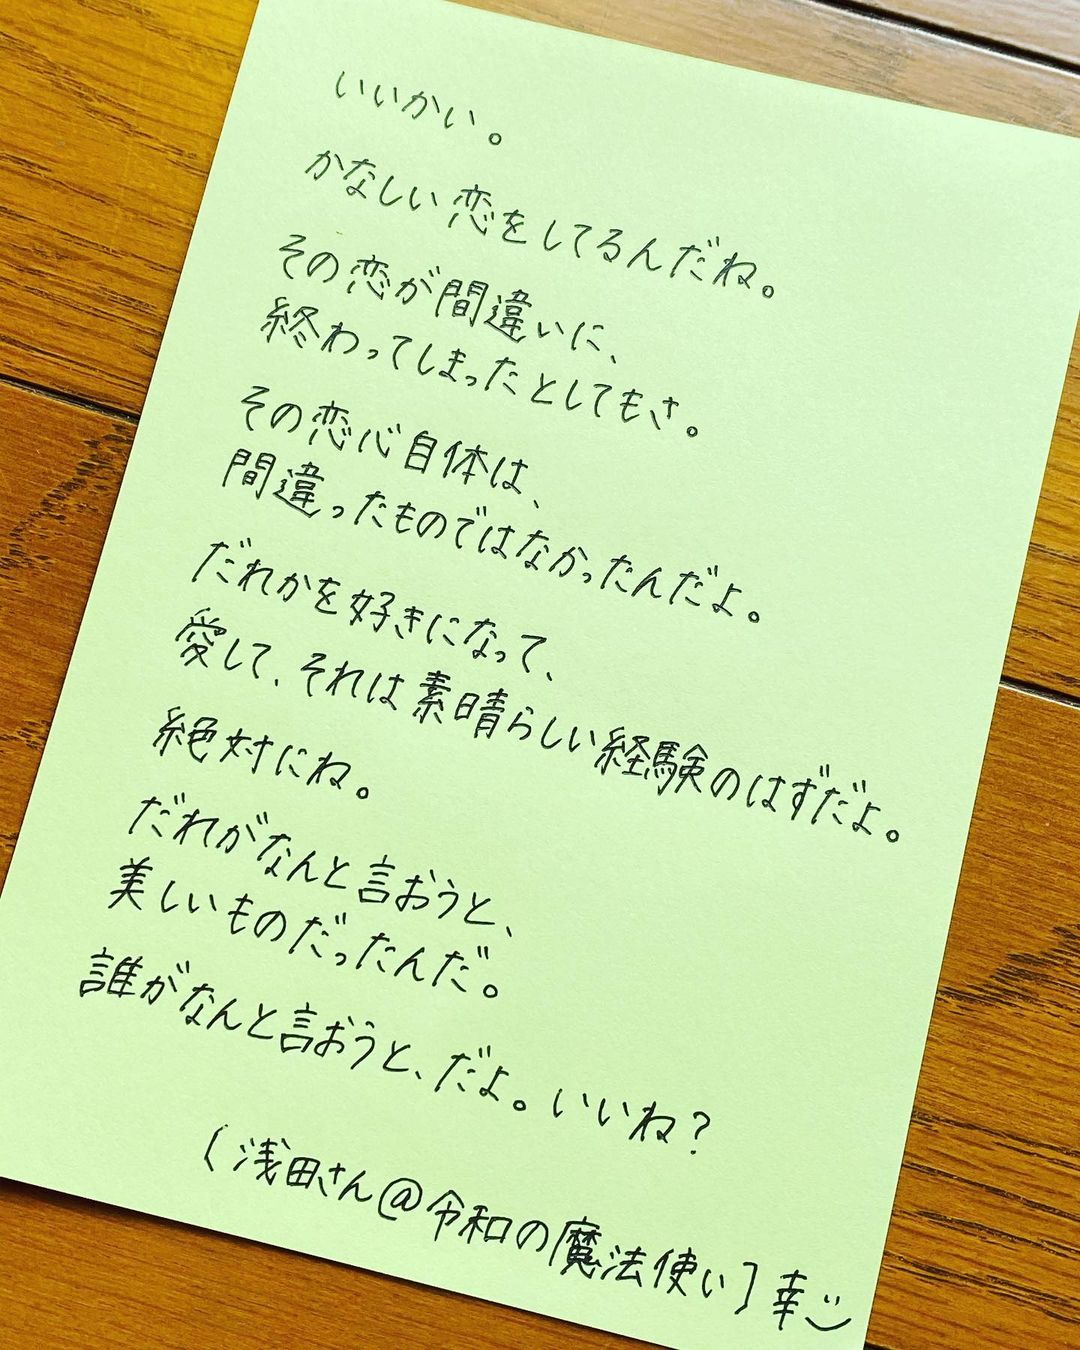 いいかい。
かなしい恋をしてるんだね。
その恋が間違いに、
終わってしまったとしてもさ。
その恋心自体は、
間違ったものではなかったんだよ。
だれかを好きになって、
愛して、それは素晴らしい経験のはずだよ。
絶対にね。
だれがなんと言おうと、
美しいものだったんだ。
誰がなんと言おうと、だよ。いいね?
(浅田さん@令和の魔法使い]幸